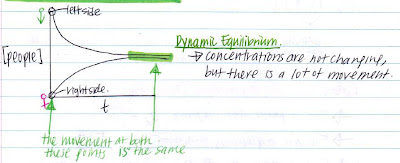 left side
Dynamic Equilibrium.
[people]
→ concentrations are not changing,
but there is a lot of movement.
right side.
t
the movement at both
these points is the same